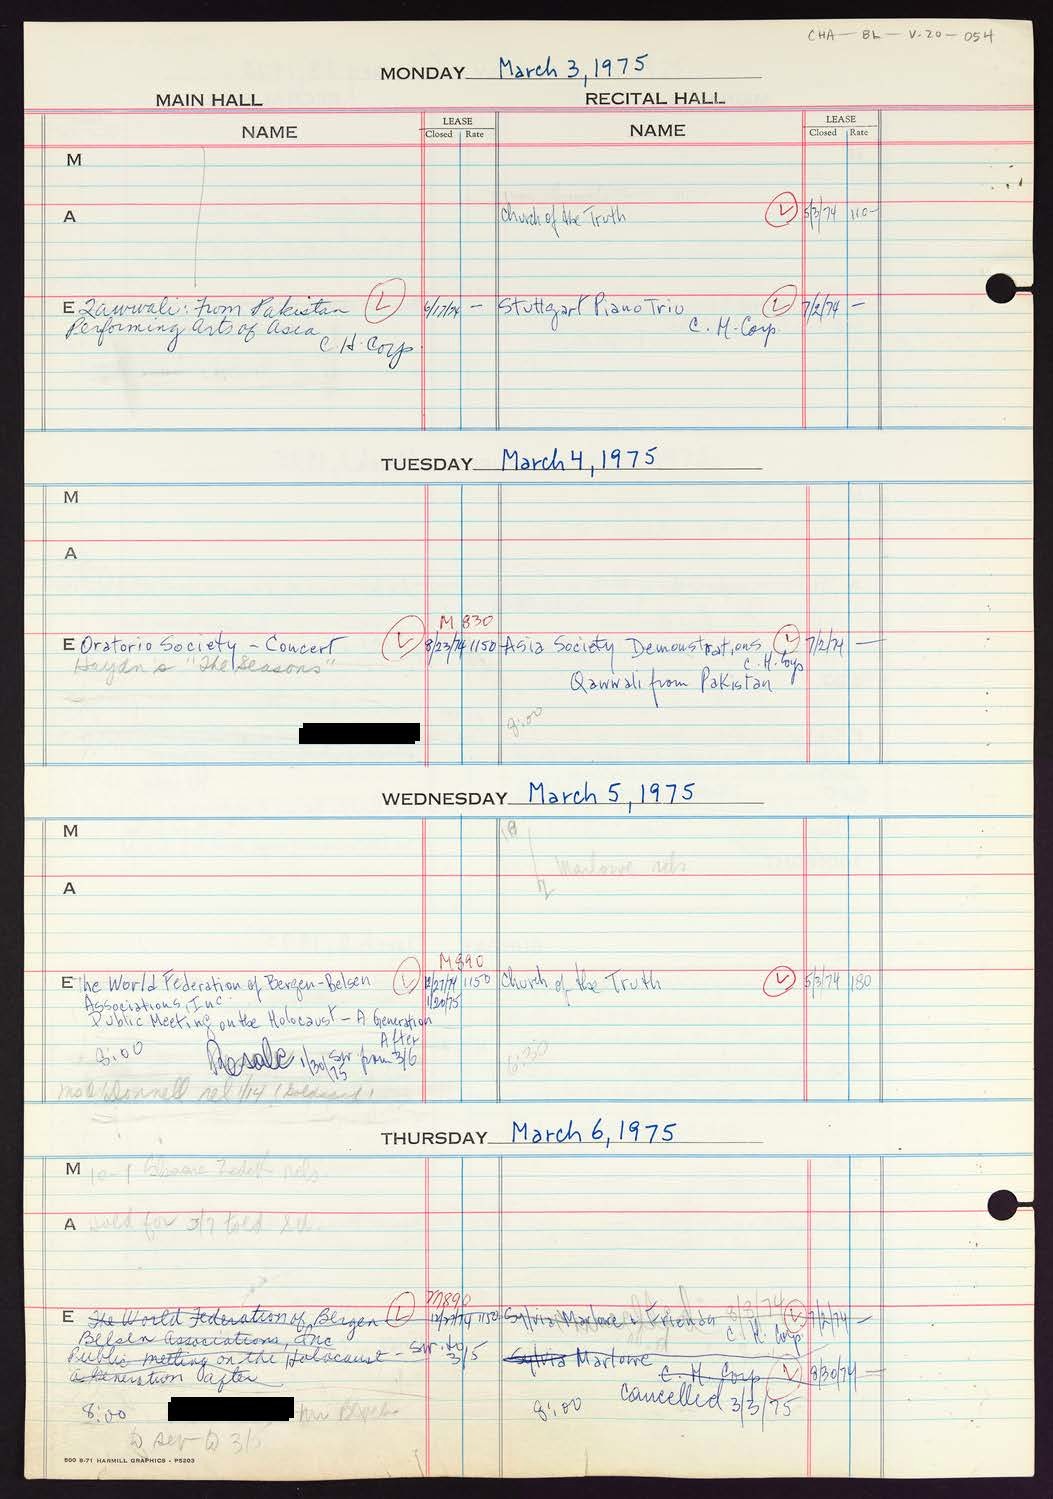 CHA-BL-V.20-054
MONDAY March 3, 1975
MAIN HALL RECITAL HALL
NAME LEASE Closed Rate NAME LEASE Closed Rate
M
A Church of the Truth L 5/3/74 110-
E Qawwali: From Pakistan L 6/17/74 - Stuttgart Piano Trio L 7/2/74 -
Performing Arts of Asia C. H. Corp.
C. H. Corp.
TUESDAY March 4, 1975
M
A
M 830
E Oratorio Society - Concert L 8/23/74 1150 Asia Society Demonstrations L 7/2/74 -
Haydn's "The Seasons" C. H. Corp
Qawwali from Pakistan
8:00
WEDNESDAY March 5, 1975
M 10
Marlowe rels
A
M 890
E The World Federation of Bergen-Belsen L 12/27/74 1150 Church of the Truth L 5/3/74 180
Associations, Inc. 1/20/75
Public Meeting on the Holocaust - A Generation
After
8:00 Resale 1/30/75 Swr from 3/6 6:30
1/14
THURSDAY March 6, 1975
M 10-1
A sold for 3/7 told
M 890
E The World Federation of Bergen L 12/27/74 1150 Sylvia Marlowe & Friends L 7/2/74 -
Belsen Associations, Inc C. H. Corp
Public meeting on the Holocaust - Swr. to 3/5 Sylvia Marlowe
a Generation after C. H. Corp L 8/30/74 -
8:00 8:00 Cancelled 3/3/75
500 8-71 HARMILL GRAPHICS - P5203